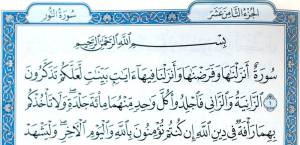 الجزء الثامن عشر سورة النور
بسم الله الرحمن الرحيم
سورة أنزلنها وفرضنها وأنزلنا فيها ءايت بينت لعلكم تذكرون
١ الزانية والزاني فاجلدوا كل وحد منهما مائة جلدة ولا تأخذكم
بهما رأفة في دين الله إن كنتم تؤمنون بالله واليوم الآخر وليشهد